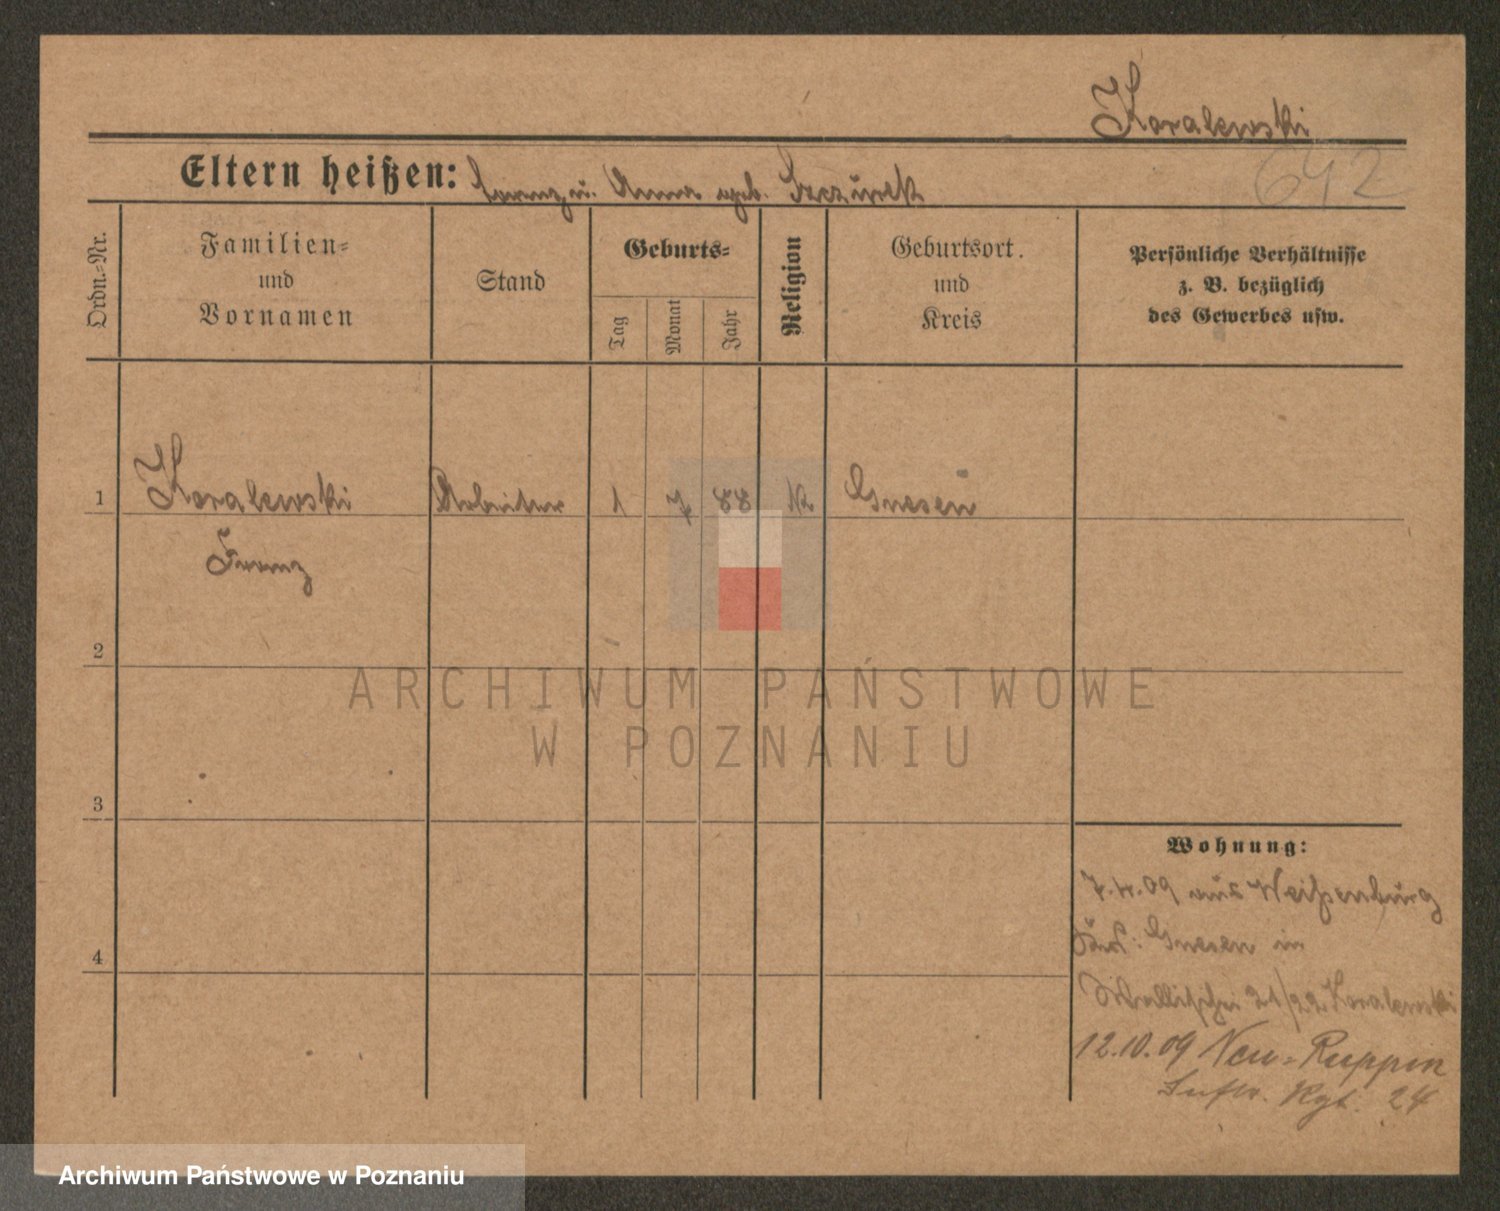 Koralewski
642
Eltern heißen: Lorenz u. Anna geb. Szczurek
Ordn.=Nr.
Familien=
und
Vornamen
Stand
Geburts=
Tag
Monat
Jahr
Religion
Geburtsort.
und
Kreis
Persönliche Verhältnisse
z. B. bezüglich
des Gewerbes usw.
1 Koralewski Arbeiter 1 7 88 k. Gnesen
Franz
2
3
4
ARCHIWUM PAŃSTWOWE
W POZNANIU
Wohnung:
7.4.09 aus Weißenburg
Gnesen in
Wallischei 21/22 Koralewski
12.10.09 Neu=Ruppin
Inftr. Rgt. 24
Archiwum Państwowe w Poznaniu